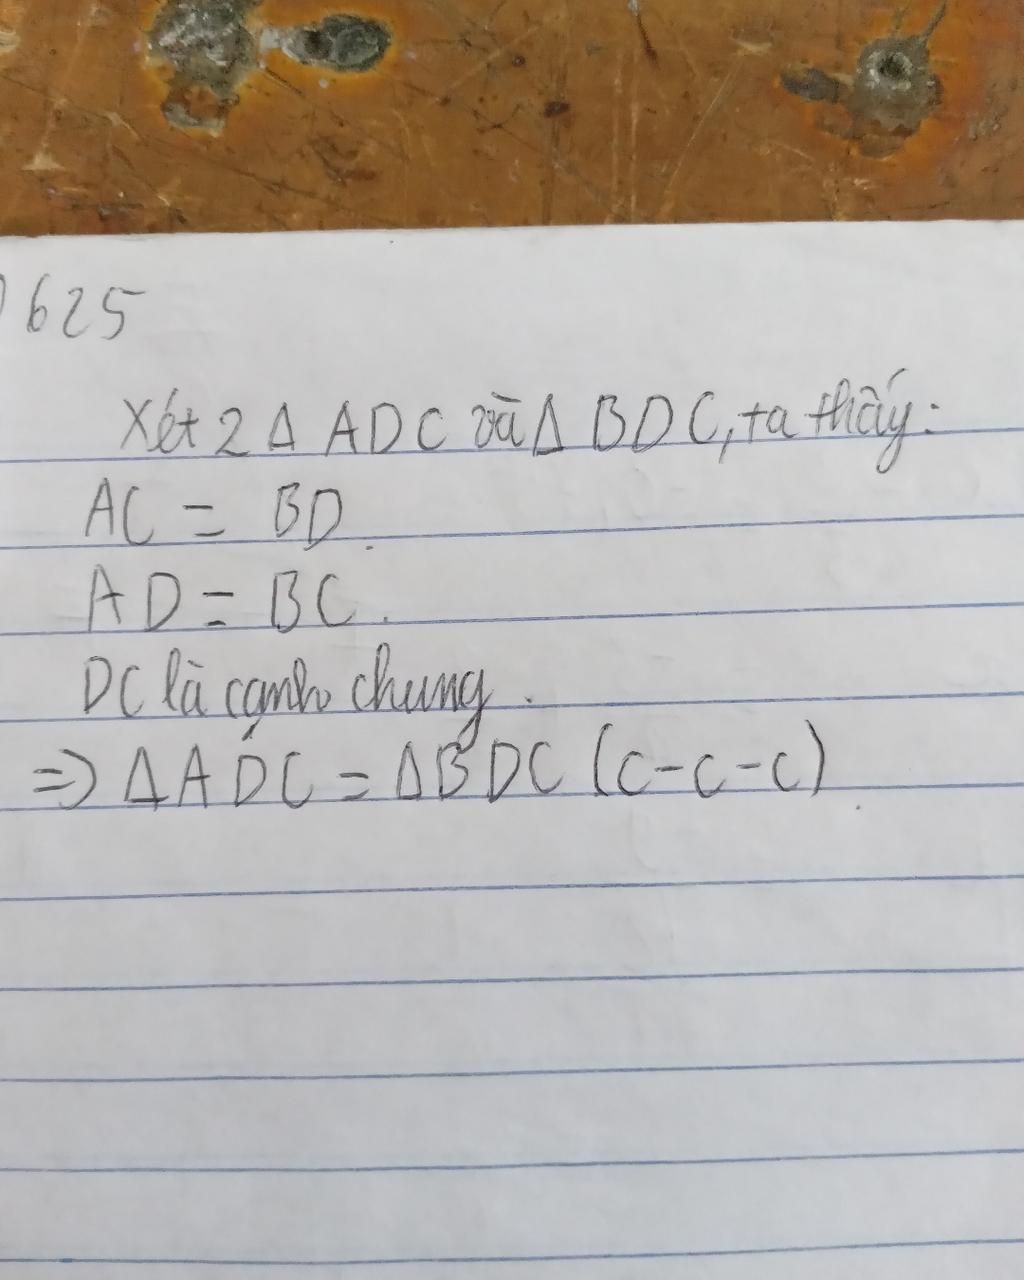 625
Xét 2 Δ ADC và Δ BDC, ta thấy:
AC = BD.
AD = BC.
DC là cạnh chung.
=> ΔADC = ΔBDC (c-c-c)